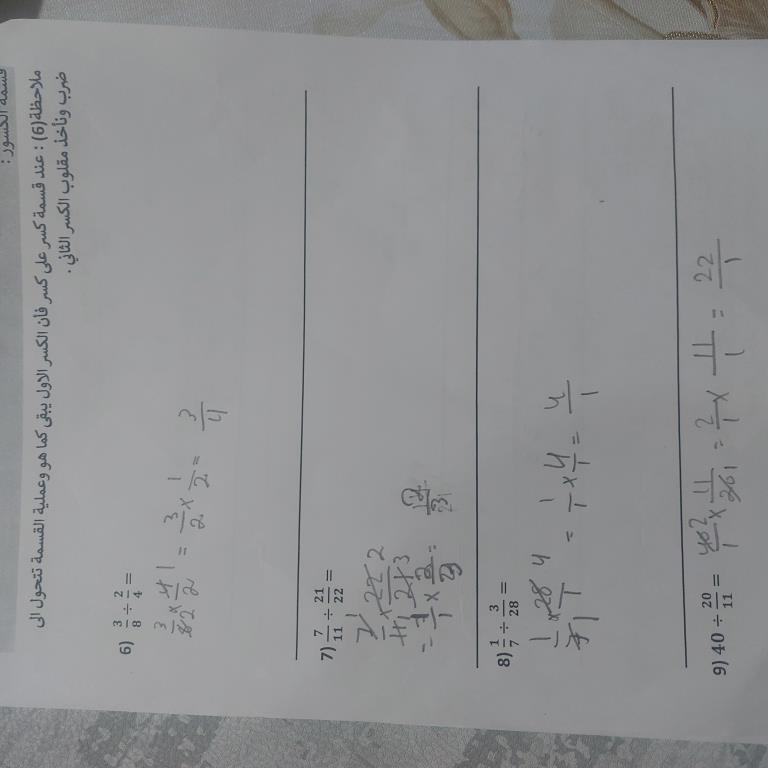 قسمة الكسور :
ملاحظة (6) : عند قسمة كسر على كسر فان الكسر الاول يبقى كما هو وعملية القسمة تتحول الى
ضرب ونأخذ مقلوب الكسر الثاني .
6) 3/8 ÷ 2/4 =
3/8 2 × 4 1/2 = 3/2 × 1/2 = 3/4
7) 7/11 ÷ 21/22 =
7 1/11 1 × 22 2/21 3
= 1/1 × 2/3 = 2/3
8) 1/7 ÷ 3/28 =
1/7 1 × 28 4/1 = 1/1 × 4/1 = 4/1
9) 40 ÷ 20/11 = 40 2/1 × 11/20 1 = 2/1 × 11/1 = 22/1